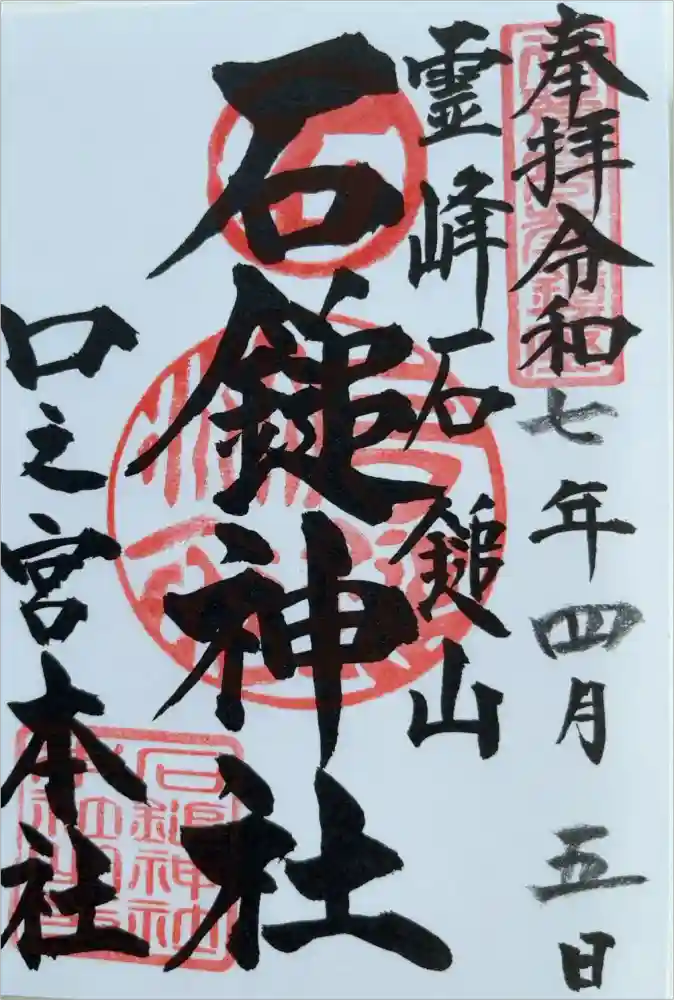 奉拝令和七年四月五日
霊峰石鎚山
石鎚神社
口之宮本社
石鎚神社